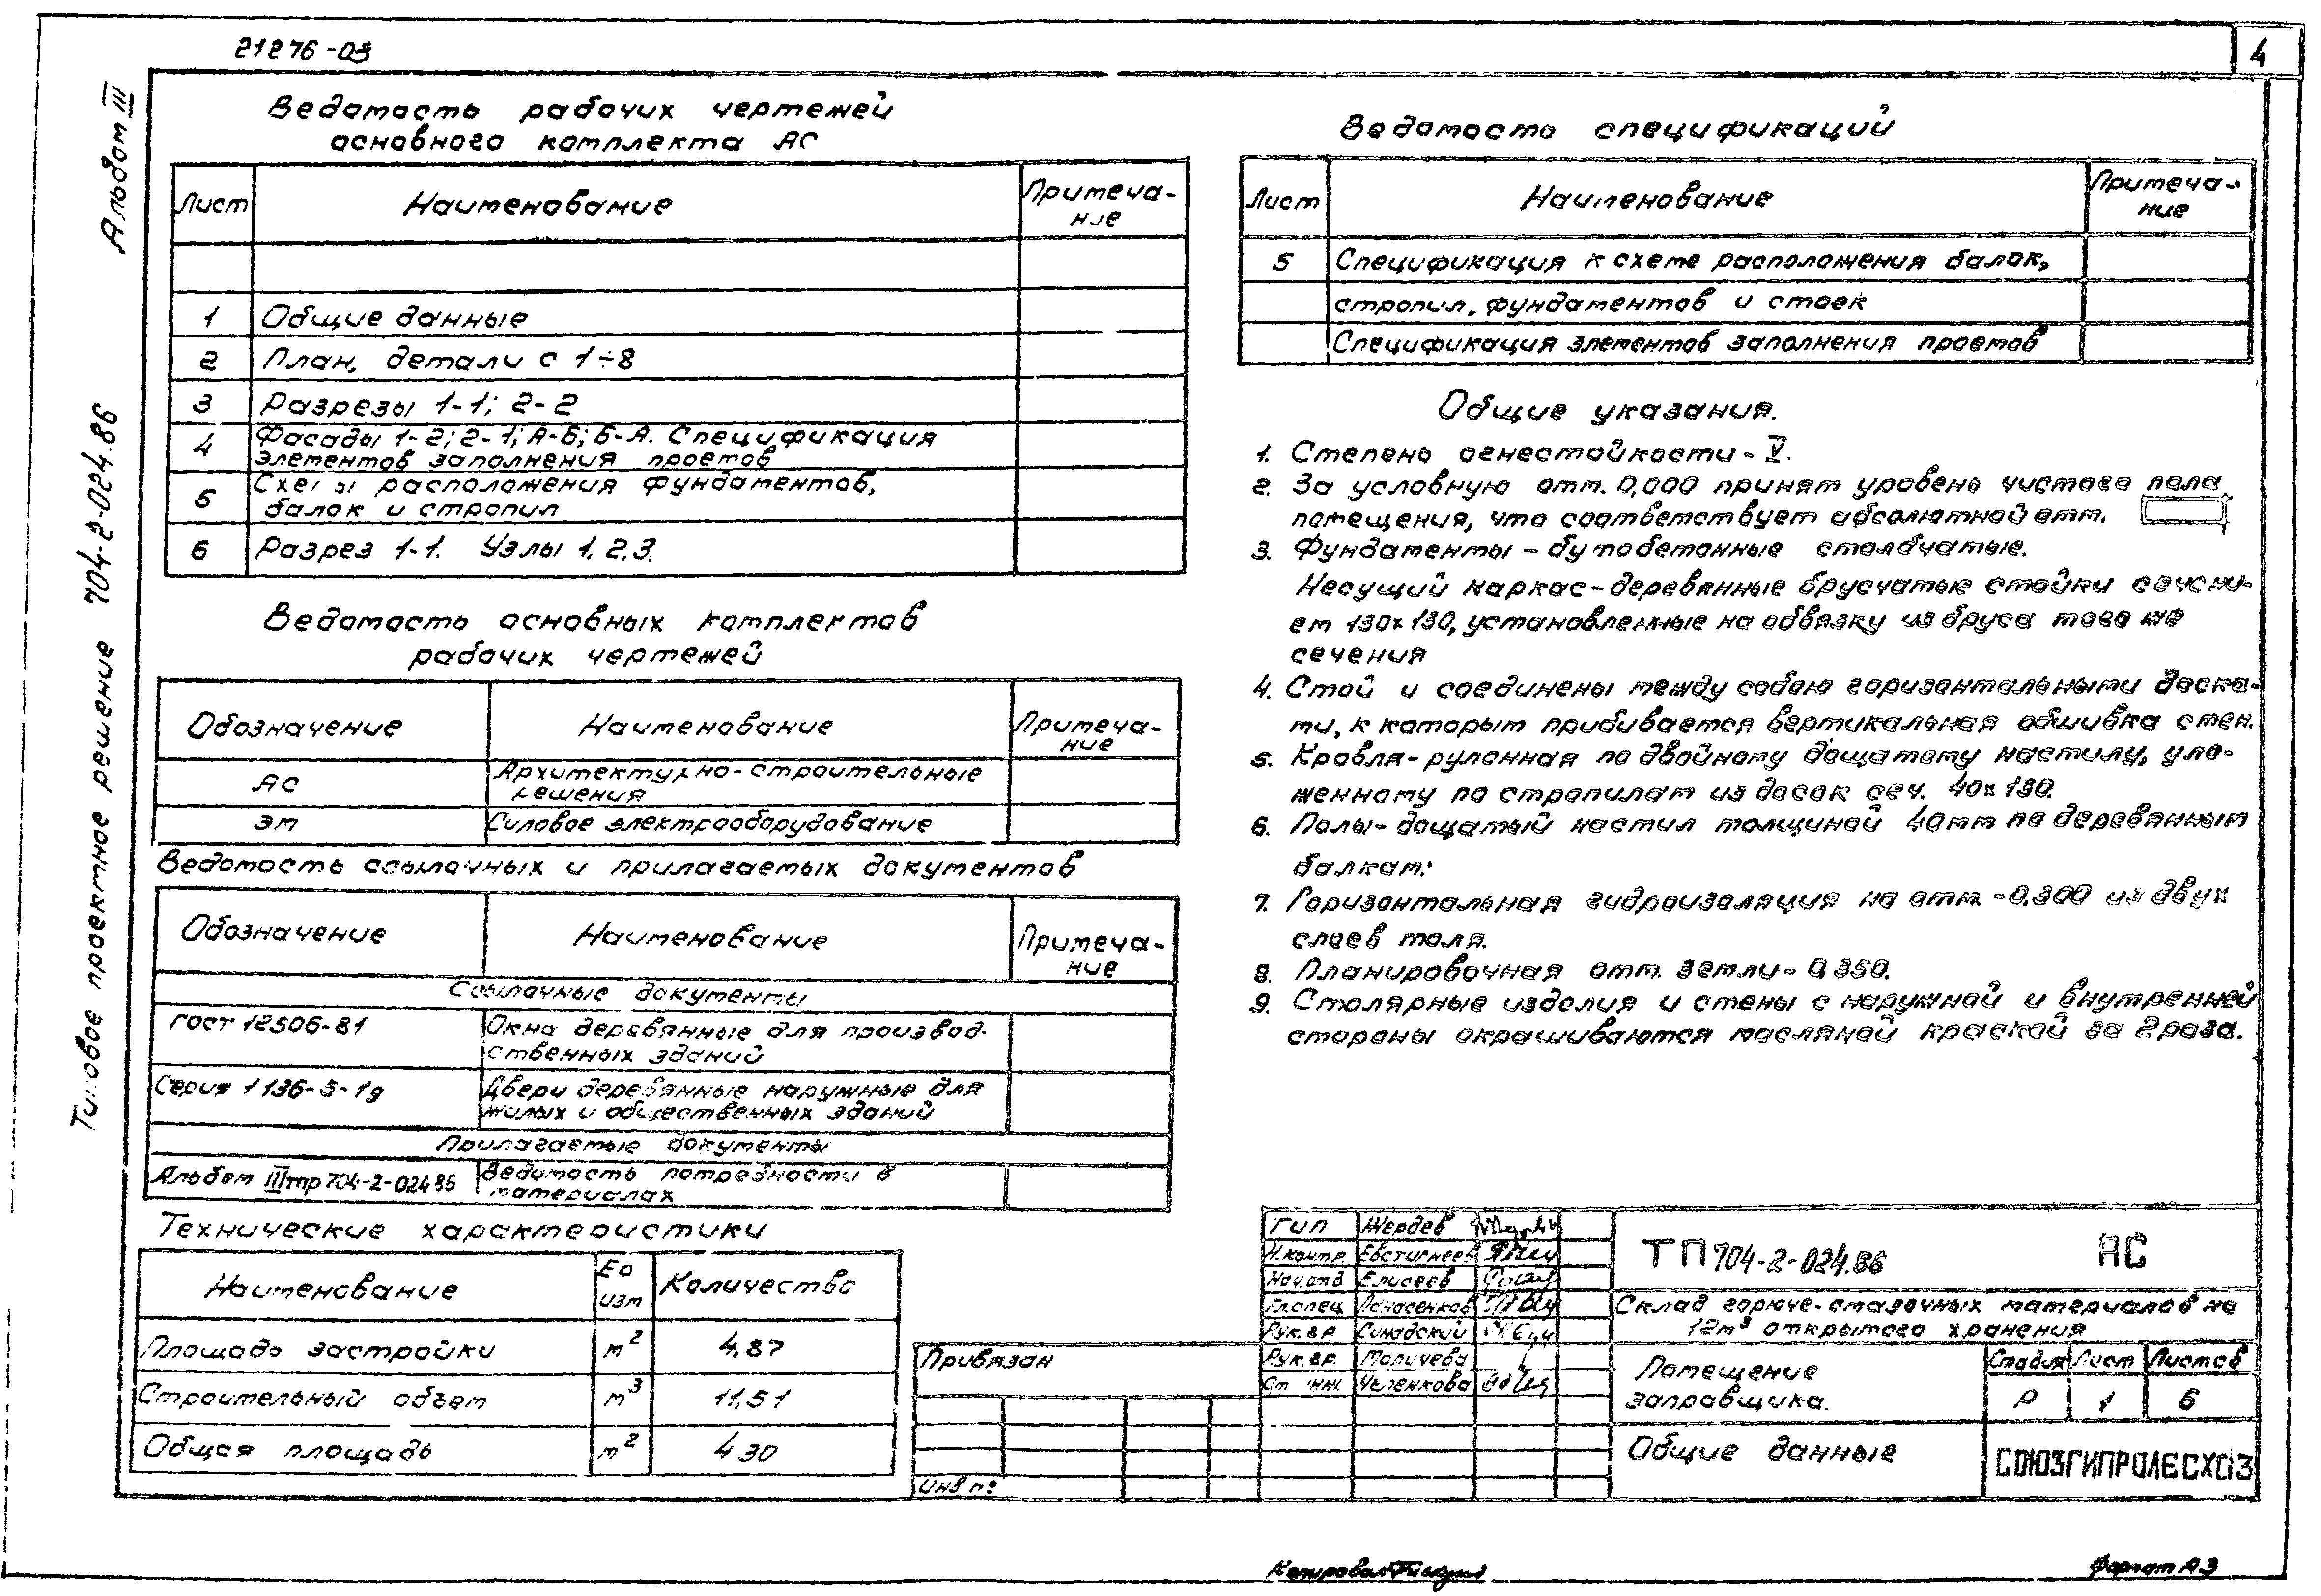 21276-03
4
Альбом III
Типовое проектное решение 704-2-024.86
Ведомость рабочих чертежей
основного комплекта АС
Лист Наименование Примеча-
ние
1 Общие данные
2 План, детали с 1÷8
3 Разрезы 1-1; 2-2
4 Фасады 1-2; 2-1; А-Б; Б-А. Спецификация
элементов заполнения проемов
5 Схемы расположения фундаментов,
балок и стропил
6 Разрез 1-1. Узлы 1, 2, 3.
Ведомость основных комплектов
рабочих чертежей
Обозначение Наименование Примеча-
ние
АС Архитектурно-строительные
решения
ЭМ Силовое электрооборудование
Ведомость ссылочных и прилагаемых документов
Обозначение Наименование Примеча-
ние
Ссылочные документы
ГОСТ 12506-81 Окна деревянные для производ-
ственных зданий
Серия 1 136-5-19 Двери деревянные наружные для
жилых и общественных зданий
Прилагаемые документы
Альбом III тпр 704-2-024 86 Ведомость потребности в
материалах
Технические характеристики
Наименование Ед
изм Количество
Площадь застройки м² 4.87
Строительный объем м³ 11,51
Общая площадь м² 4 30
Ведомость спецификаций
Лист Наименование Примеча-
ние
5 Спецификация к схеме расположения балок,
стропил, фундаментов и стоек
Спецификация элементов заполнения проемов
Общие указания.
1. Степень огнестойкости - V.
2. За условную отм. 0,000 принят уровень чистого пола
помещения, что соответствует абсолютной отм.
3. Фундаменты - бутобетонные столбчатые.
Несущий каркас - деревянные брусчатые стойки сечени-
ем 130×130, установленные на обвязку из бруса того же
сечения
4. Стой и соединены между собою горизонтальными доска-
ми, к которым прибивается вертикальная обшивка стен.
5. Кровля - рулонная по двойному дощатому настилу, уло-
женному по стропилам из досок сеч. 40×130.
6. Полы - дощатый настил толщиной 40мм по деревянным
балкам.
7. Горизонтальная гидроизоляция на отм -0.300 из двух
слоев толя.
8. Планировочная отм. земли - 0,350.
9. Столярные изделия и стены с наружной и внутренней
стороны окрашиваются масляной краской за 2 раза.
Привязан
Инв №
ГИП Жердев
Н.контр Евстигнеев
Нач.отд Елисеев
Гл.спец Панасенков
Рук.гр Синадский
Рук.гр.
Ст инж.
ТП 704-2-024.86 АС
Склад горюче-смазочных материалов на
12м³ открытого хранения
Помещение
заправщика.
Стадия Лист Листов
Р 1 6
Общие данные
СОЮЗГИПРОЛЕСХОЗ
Копировал
Формат А3